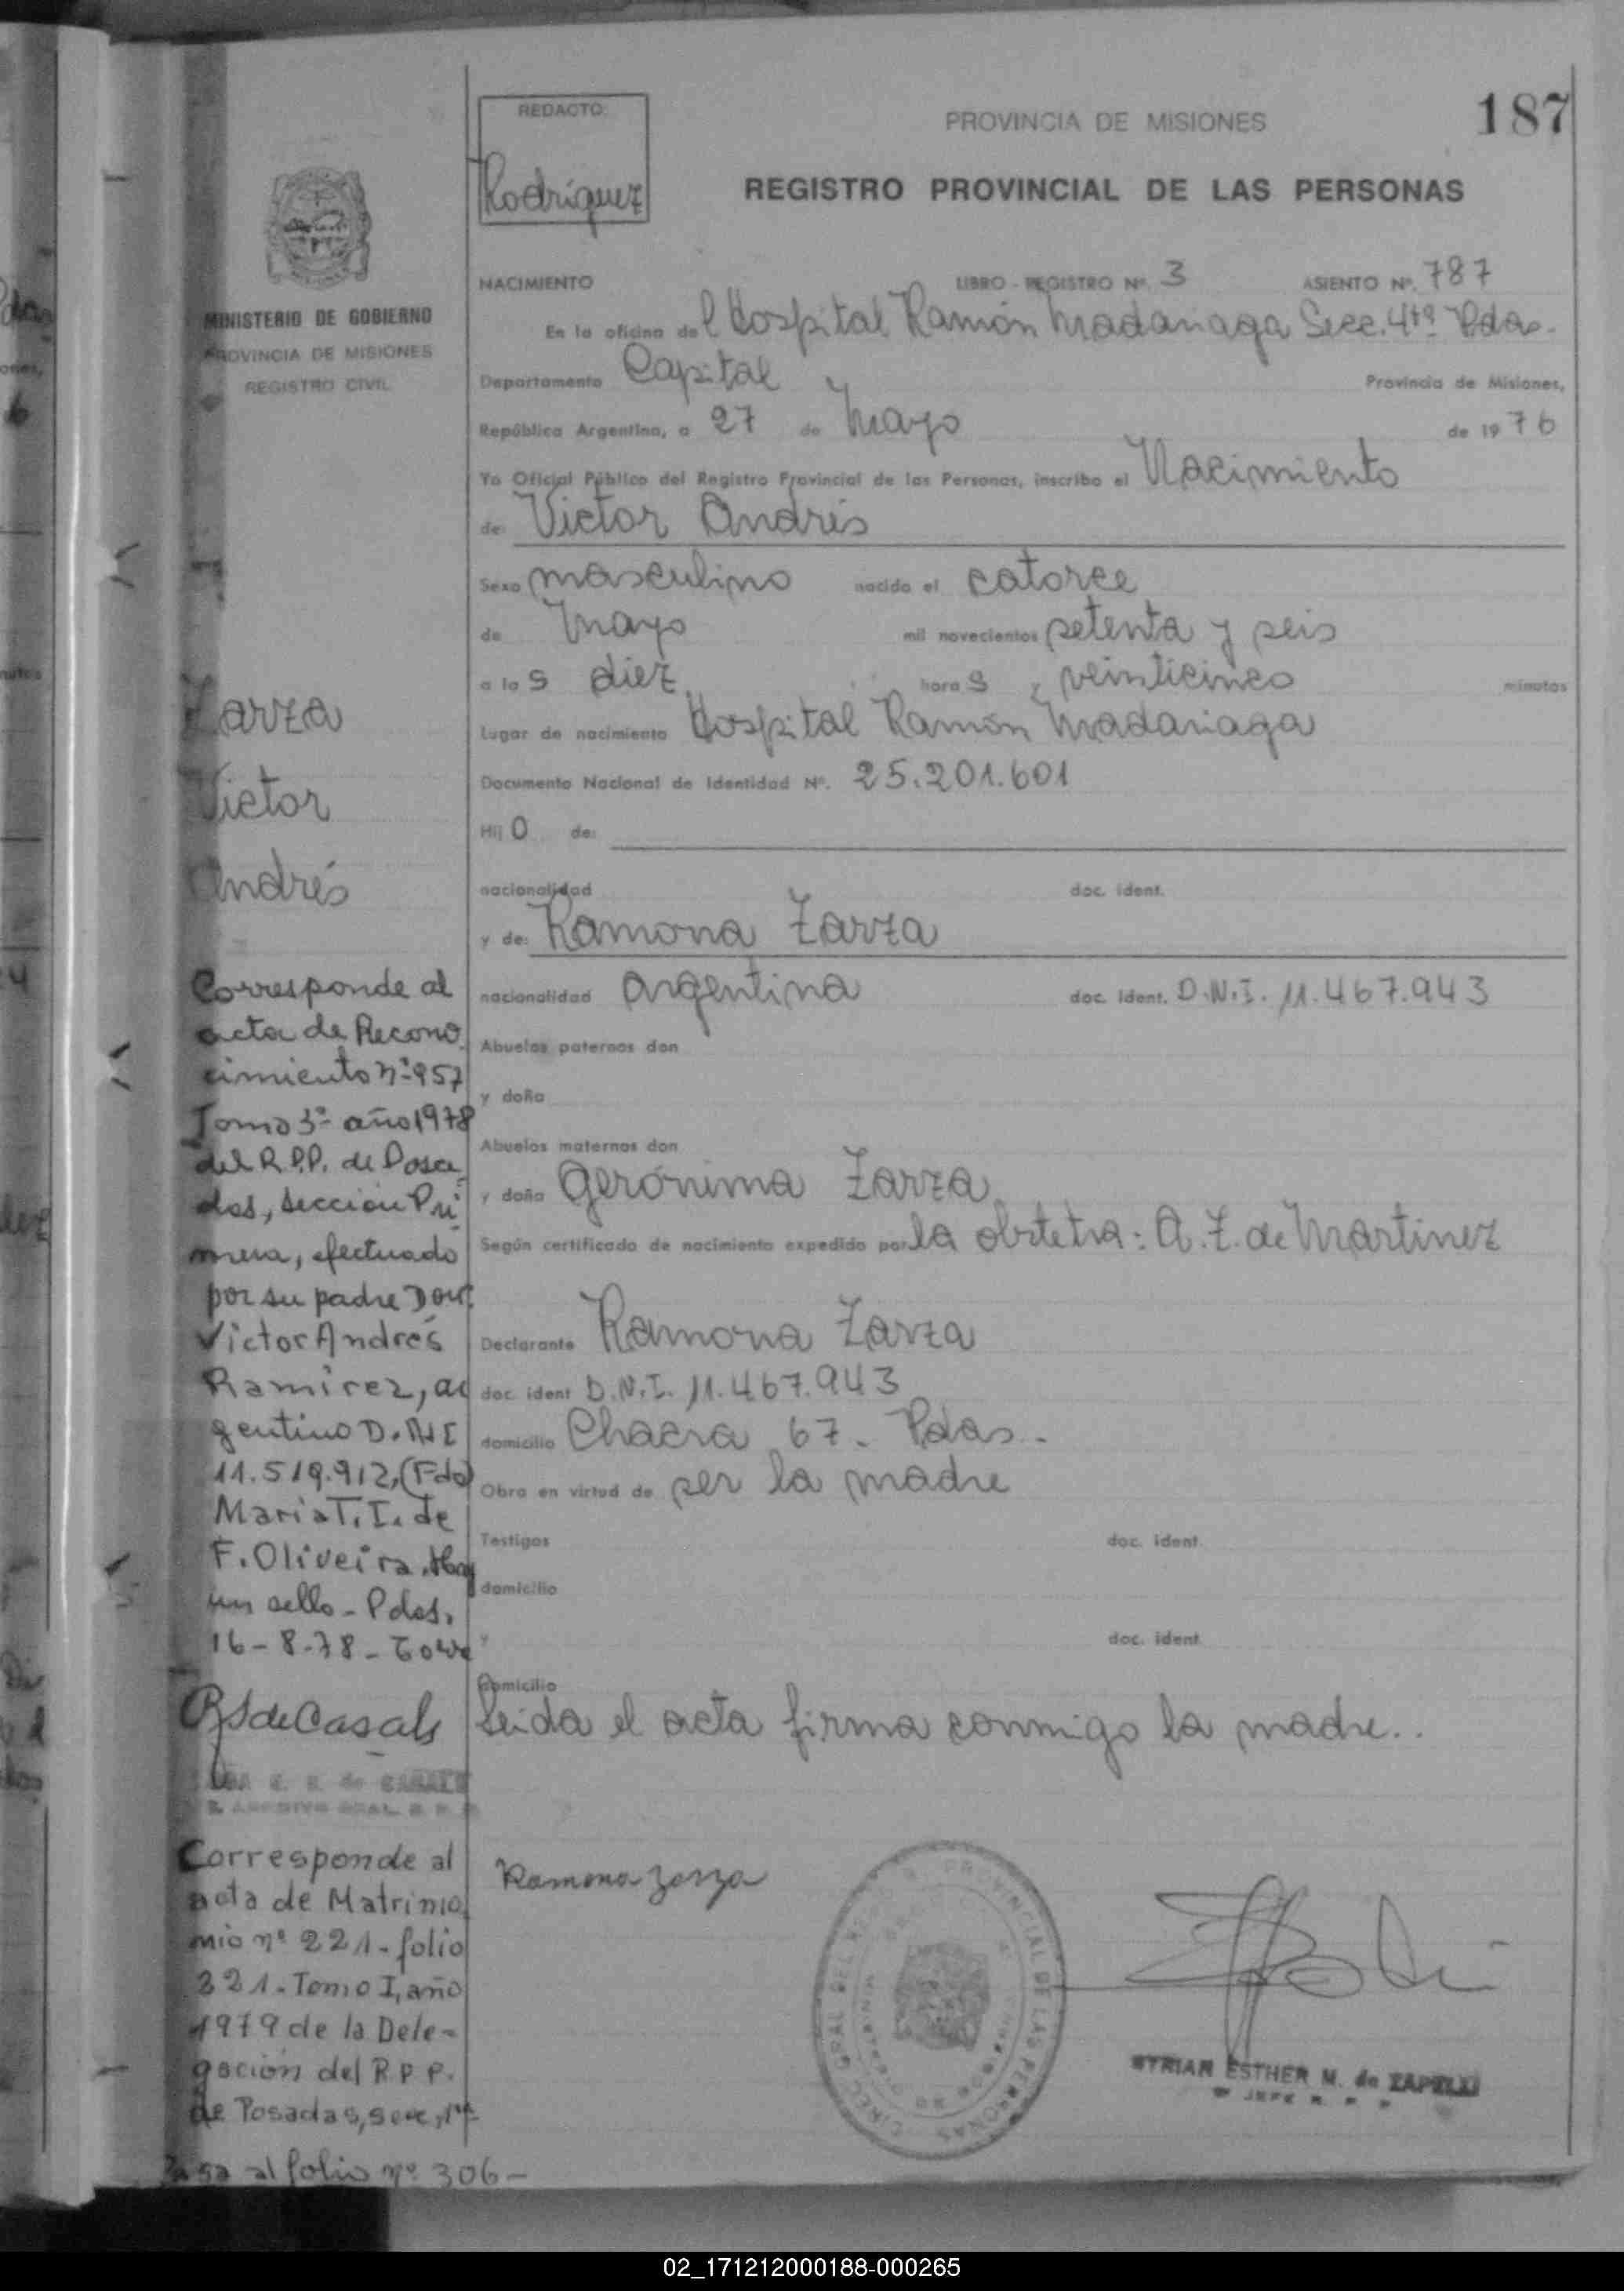 187
REDACTO:
Rodríguez
PROVINCIA DE MISIONES
REGISTRO PROVINCIAL DE LAS PERSONAS
MINISTERIO DE GOBIERNO
PROVINCIA DE MISIONES
REGISTRO CIVIL
NACIMIENTO LIBRO - REGISTRO Nº. 3 ASIENTO Nº. 787
En la oficina del Hospital Ramón Madariaga Secc. 4ta Pdas.
Departamento Capital Provincia de Misiones,
República Argentina, a 27 de Mayo de 1976
Yo Oficial Público del Registro Provincial de las Personas, inscribo el Nacimiento
de: Victor Andrés
Sexo masculino nacido el catorce
de Mayo mil novecientos setenta y seis
a las diez horas y veinticinco minutos
Lugar de nacimiento Hospital Ramón Madariaga
Documento Nacional de Identidad Nº. 25.201.601
Hijo de:
nacionalidad doc. ident.
y de: Ramona Zarza
nacionalidad argentina doc. ident. D.N.I. 11.467.943
Abuelos paternos don
y doña
Abuelos maternos don
y doña Gerónima Zarza
Según certificado de nacimiento expedido por la obstetra: A. Z. de Martinez
Declarante Ramona Zarza
doc. ident D.N.I. 11.467.943
domicilio Chacra 67. Pdas.
Obra en virtud de ser la madre
Testigos doc. ident.
domicilio
y doc. ident
domicilio
Leida el acta firma conmigo la madre..
Ramona Zarza
MYRIAN ESTHER M. de ZAPELLI
JEFE R. P. P
Zarza
Victor
Andrés
Corresponde al
acta de Recono
cimiento nº 957
Tomo 3º año 1978
del R.P.P. de Posa
das, sección Pri
mera, efectuado
por su padre Don:
Victor Andrés
Ramirez, ar
gentino D.N.I
11.519.912, (Fdo)
Maria T. I. de
F. Oliveira. Hay
un sello - Pdas.
16-8-78-
de Casals
de CASALS
Corresponde al
acta de Matrimo
nio nº 221. folio
221. Tomo I, año
1979 de la Dele-
gación del R.P.P.
de Posadas, secc, 1ra
Pasa al folio nº 306-
02_171212000188-000265